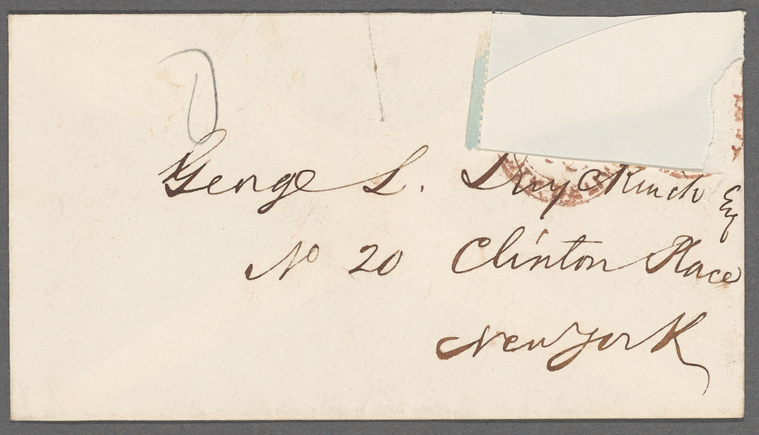 George L. Duyckinck Esq
No 20 Clinton Place
New York